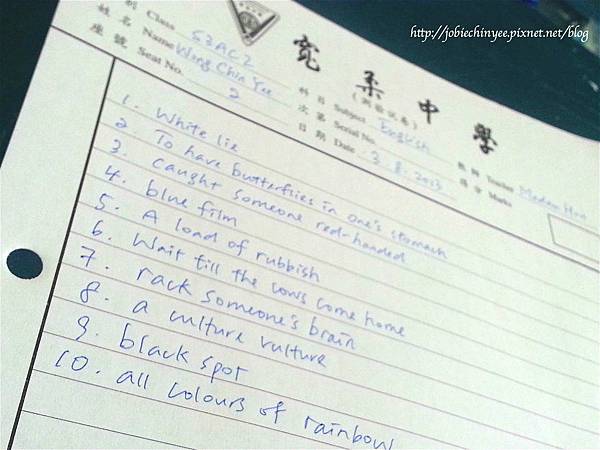 http://jobiechinyee.pixnet.net/blog
寬柔中學
(測驗試卷)
別 Class S3AC2
姓名 Name Wong Chin Yee
座號 Seat No. 2
科目 Subject English
次第 Serial No.
日期 Date 3.8.2013
教師 Teacher Madam
得分 Marks
1. White lie
2. To have butterflies in one's stomach
3. caught someone red-handed
4. blue film
5. A load of rubbish
6. Wait till the cows come home
7. rack someone's brain
8. a culture vulture
9. black spot
10. all colours of rainbow